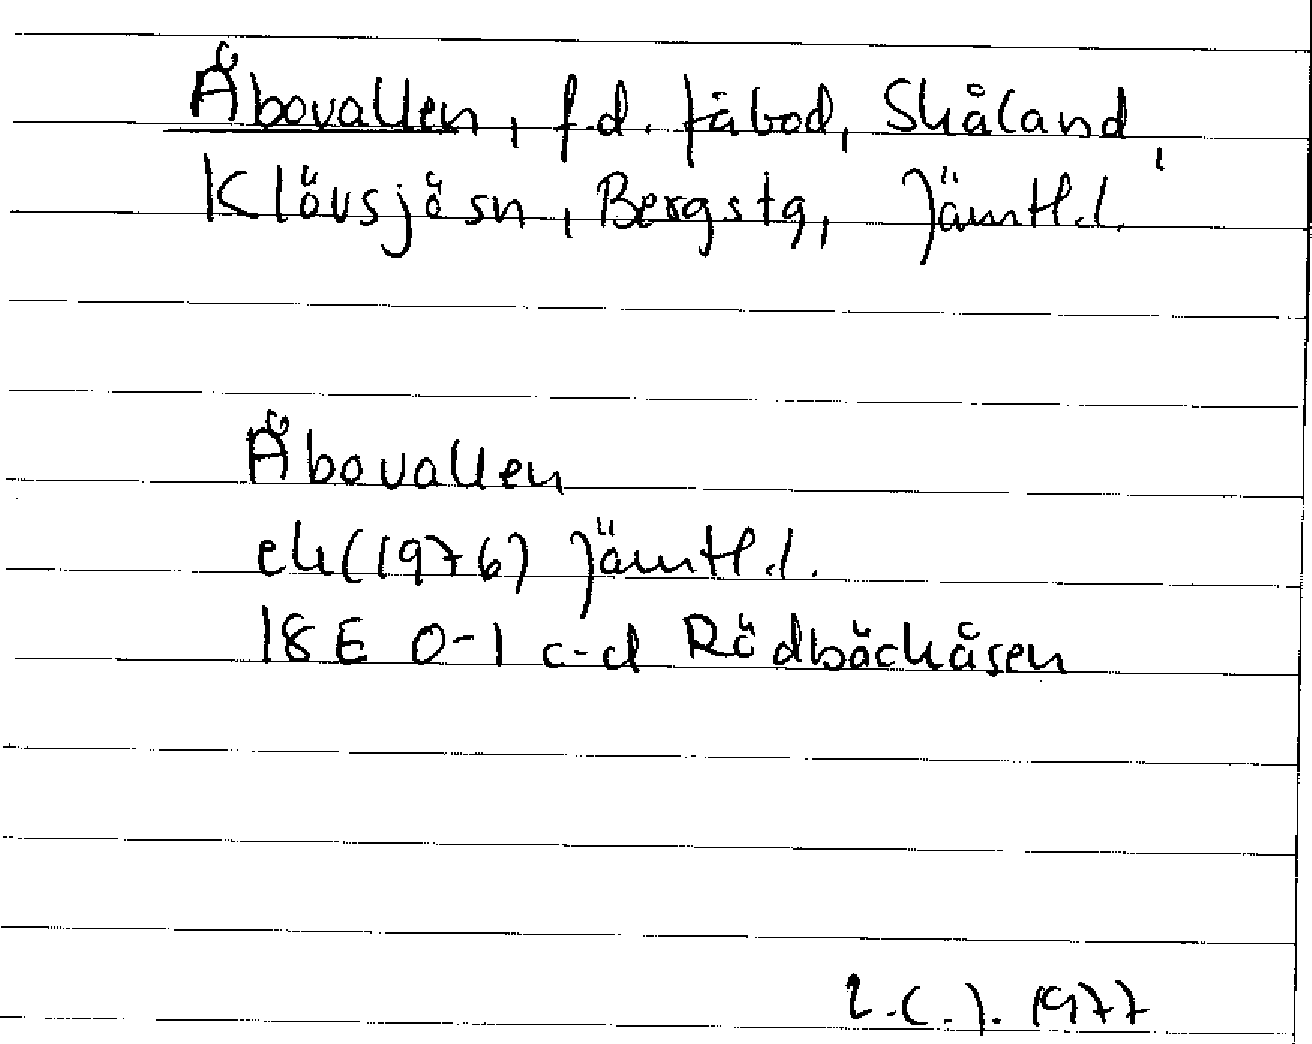 Åbovallen, f.d. fäbod, Skåland,
Klövsjösn, Bergstg, Jämtl.l.
Åbovallen
ek(1976) Jämtl.l.
18E 0-1 c-d Rödbäckåsen
L.C.J. 1977